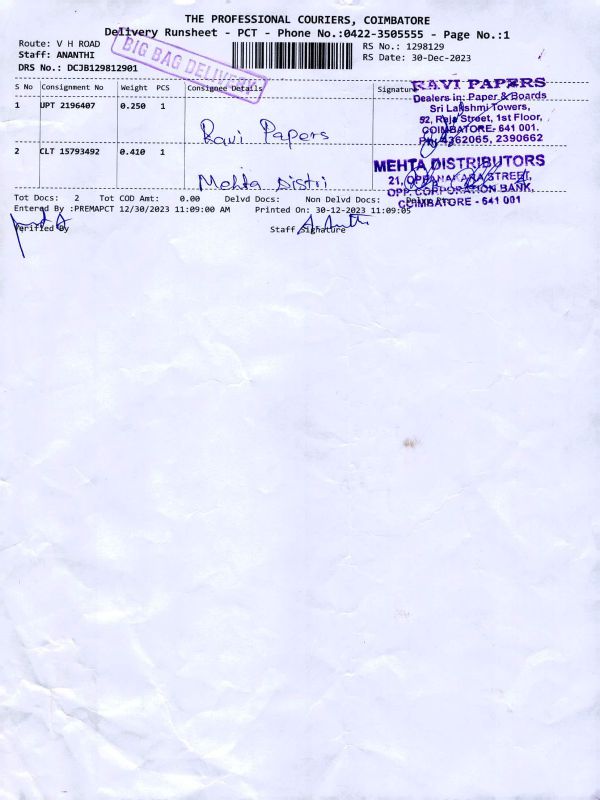 THE PROFESSIONAL COURIERS, COIMBATORE
Delivery Runsheet - PCT - Phone No.:0422-3505555 - Page No.:1
Route: V H ROAD
RS No.: 1298129
Staff: ANANTHI
RS Date: 30-Dec-2023
DRS No.: DCJB129812901
BIG BAG DELIVERY
S No Consignment No Weight PCS Consignee Details Signature
1 UPT 2196407 0.250 1
Ravi Papers
RAVI PAPERS
Dealers in: Paper & Boards
Sri Lakshmi Towers,
52, Raja Street, 1st Floor,
COIMBATORE- 641 001.
PH: 4362065, 2390662
2 CLT 15793492 0.410 1
Mehta Distri
MEHTA DISTRIBUTORS
21, OPPANAKARA STREET,
OPP. CORPORATION BANK,
COIMBATORE - 641 001
Tot Docs: 2 Tot COD Amt: 0.00 Delvd Docs: Non Delvd Docs:
Entered By :PREMAPCT 12/30/2023 11:09:00 AM Printed On: 30-12-2023 11:09:05
Verified By
Staff Signature